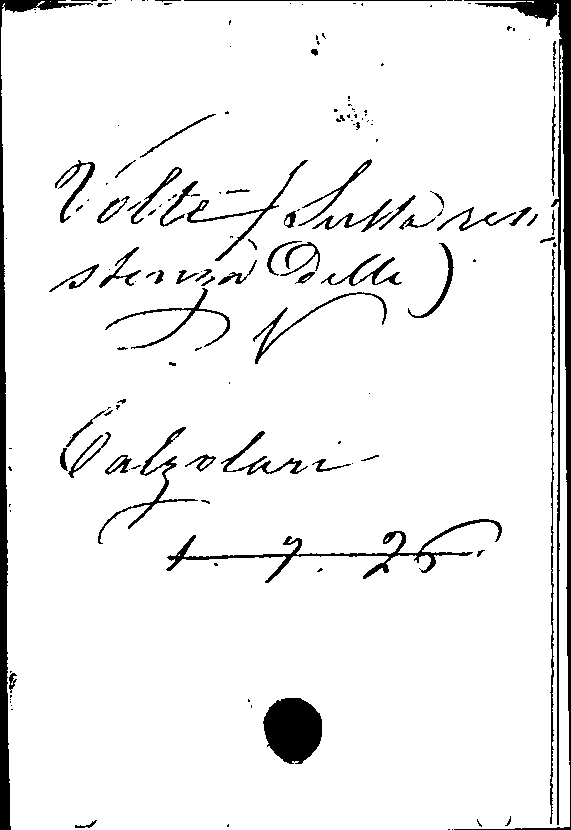 Volte (Sulla resi-
stenza delle)
V
Calzolari
1. 7. 26.